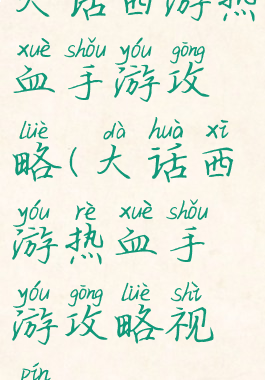 大话西游热
xuè shǒu yóu gōng
血手游攻
lüè dà huà xī
略(大话西
yóu rè xuè shǒu
游热血手
yóu gōng lüè shì
游攻略视
pín